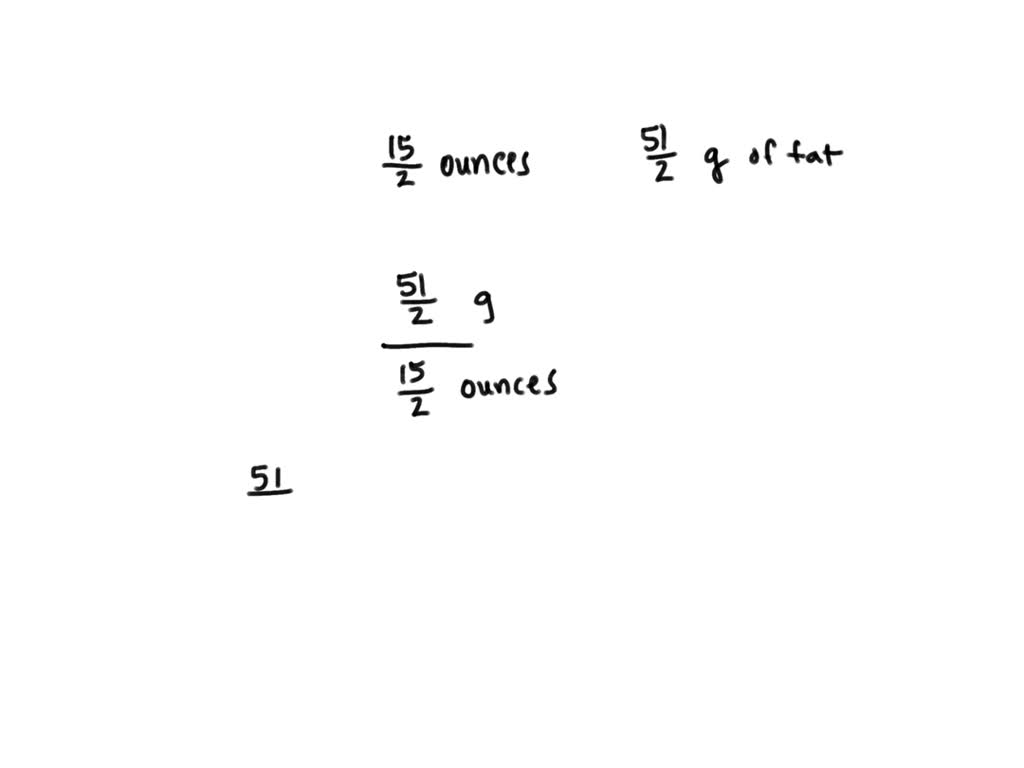 15/2 ounces 51/2 g of fat
51/2 g
15/2 ounces
51